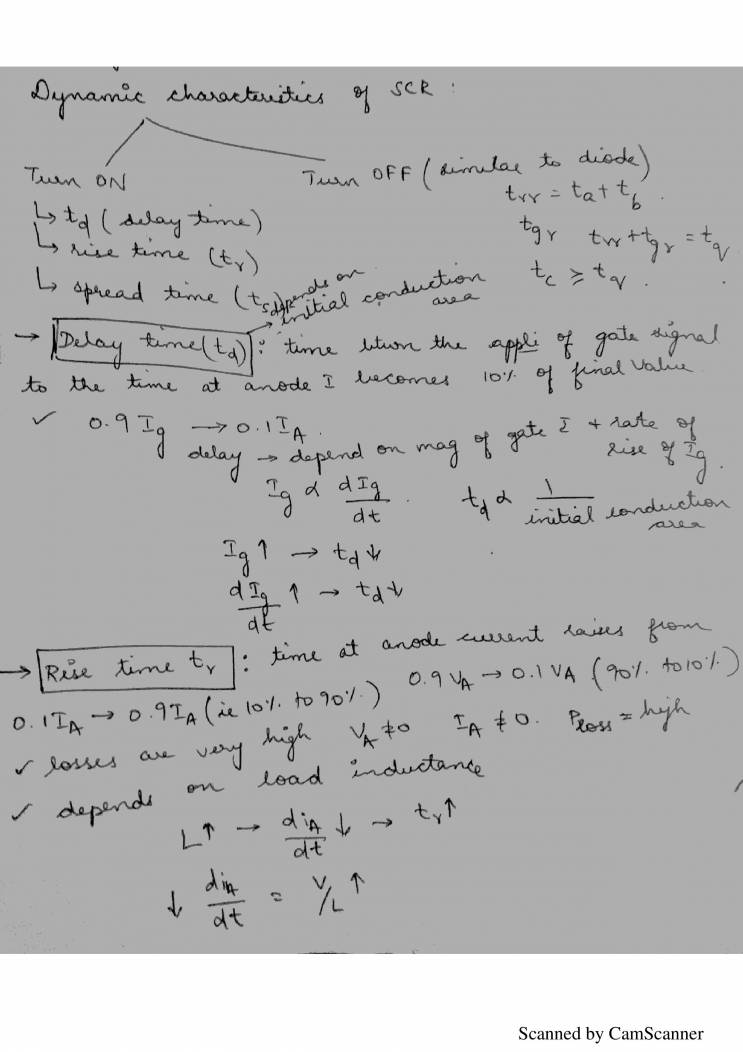 Dynamic characteristics of SCR :
Turn ON
Turn OFF ( similar to diode)
trr = ta + tb .
↳ td ( delay time)
tgr trr + tgr = tq
↳ rise time (tr)
tc ≥ tq .
↳ spread time (ts) depends on initial conduction area
→ Delay time(td) : time btwn the appli of gate signal
to the time at anode I becomes 10% of final value
✓ 0.9 Ig → 0.1 IA .
delay → depend on mag of gate I + rate of rise of Ig .
Ig α dIg/dt . td α 1/initial conduction area
Ig ↑ → td ↓
dIg/dt ↑ → td ↓
→ Rise time tr : time at anode current raises from
0.1 IA → 0.9 IA (ie 10% to 90%) 0.9 VA → 0.1 VA (90% to 10%)
✓ losses are very high VA ≠ 0 IA ≠ 0. Ploss = high
✓ depends on load inductance
L↑ → diA/dt ↓ → tr↑
↓ diA/dt = V/L ↑
Scanned by CamScanner